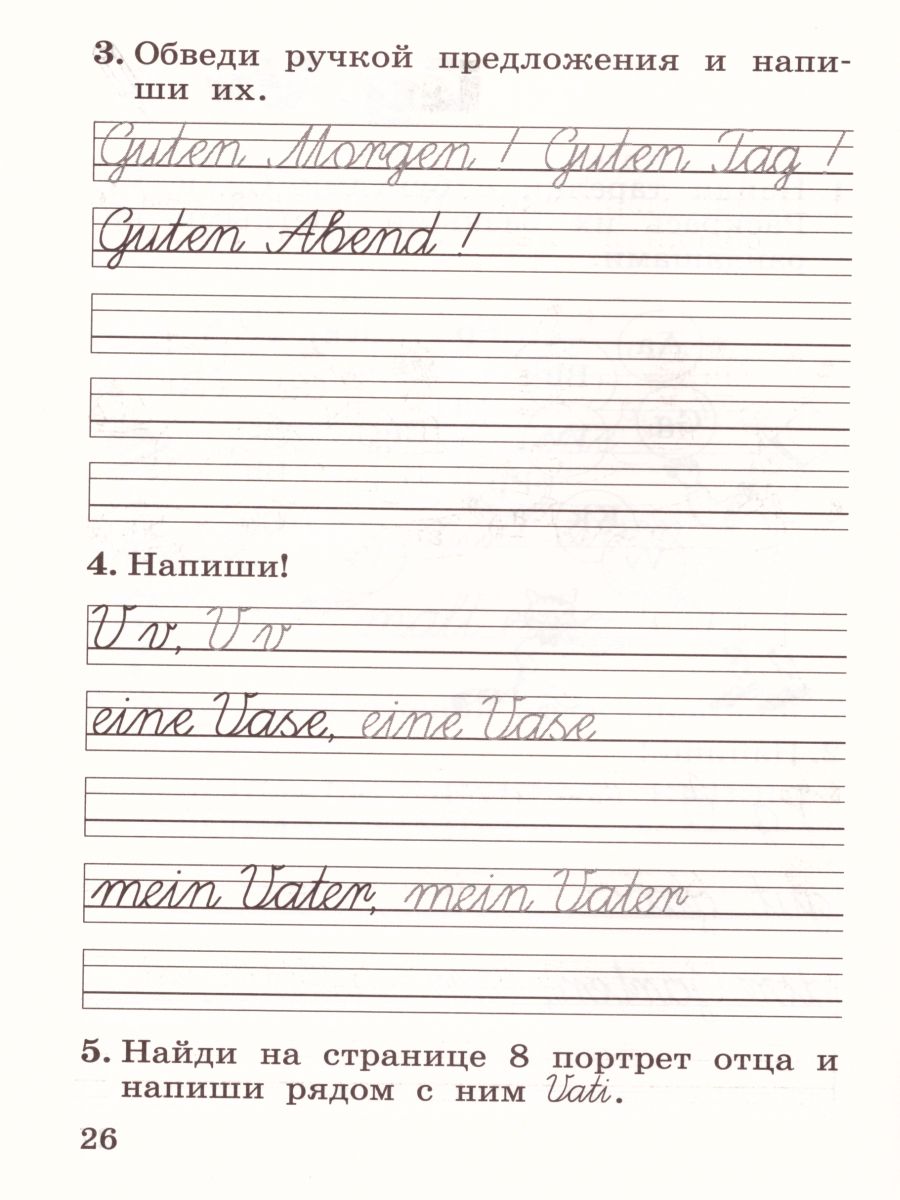 3. Обведи ручкой предложения и напи-
ши их.
Guten Morgen! Guten Tag!
Guten Abend!
4. Напиши!
V v, V v
eine Vase, eine Vase
mein Vater, mein Vater
5. Найди на странице 8 портрет отца и
напиши рядом с ним Vati.
26